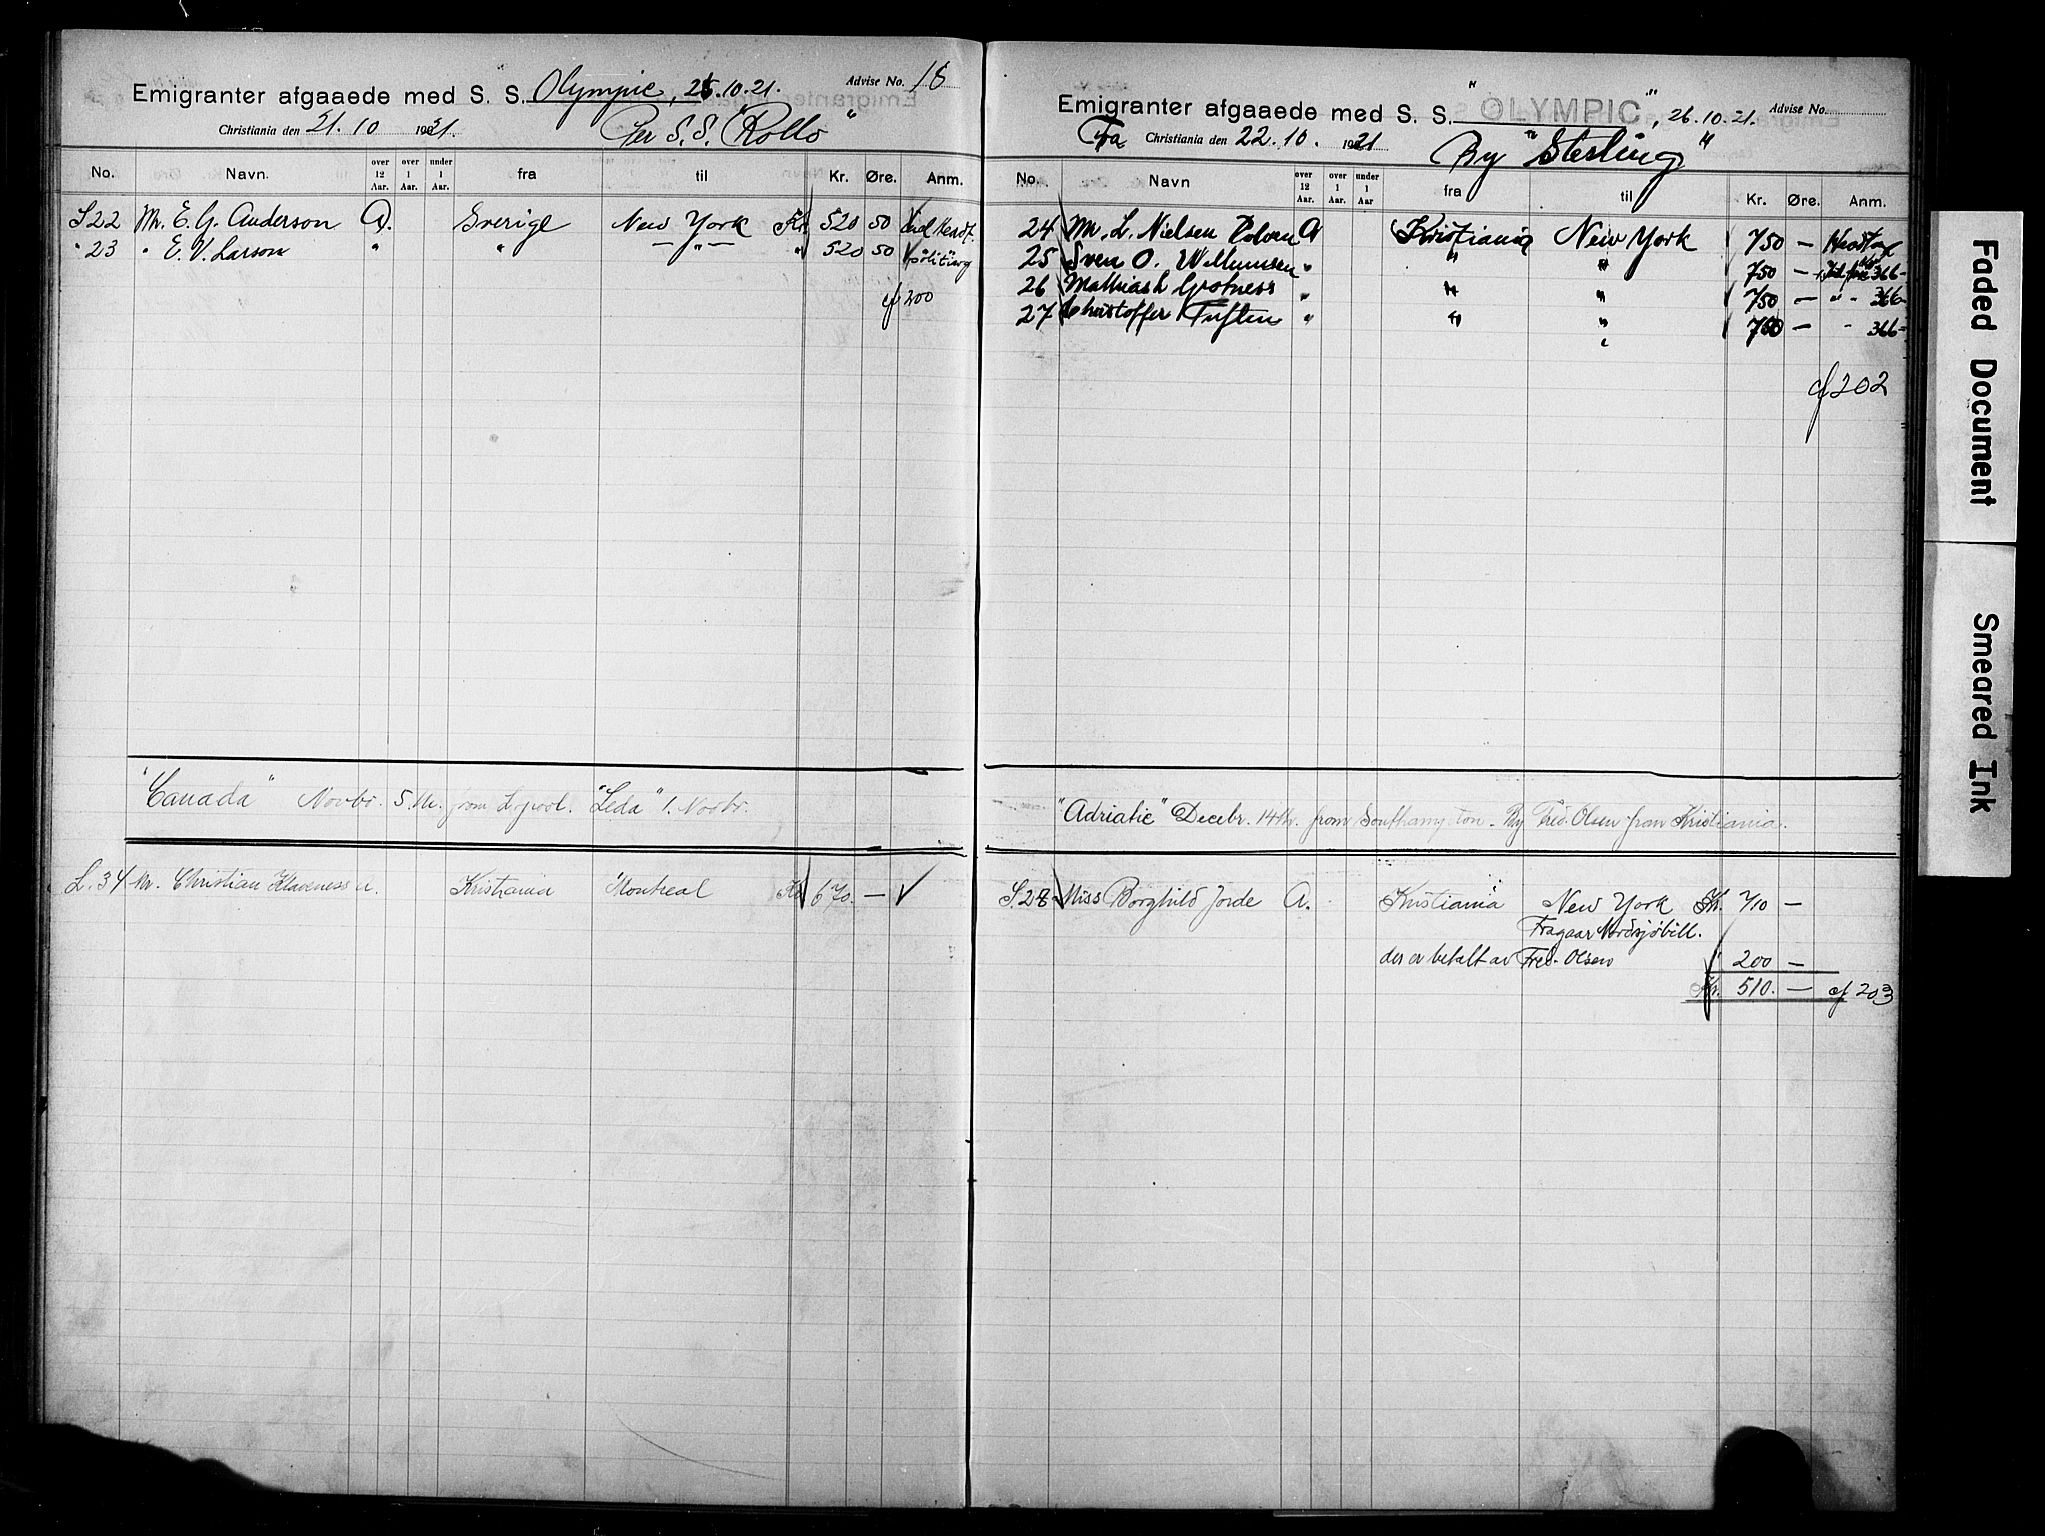 Emigranter afgaaede med S. S. Olympic, 26.10.21. Advise No. 18
Christiania den 21.10 1921. Per S.S. "Rollo"
No. Navn. over 12 Aar. over 1 Aar. under 1 Aar. fra til Kr. Øre. Anm.
S22 Mr. E. G. Anderson A. Sverige New York Kr. 520 50
" 23 " E. V. Larson " " — " — " 520 50
cf 200
"Canada" Novbr. 5. from L'pool. "Leda" 1. Novbr.
L. 34 Mr. Christian Klaveness A. Kristiania Montreal Kr 670. — ✓
Emigranter afgaaede med S. S. "OLYMPIC", 26.10.21. Advise No.
Fra Christiania den 22.10. 1921 By "Sterling"
No. Navn over 12 Aar. over 1 Aar. under 1 Aar fra til Kr. Øre. Anm.
24 Mr. L. Nielsen A Kristiania New York 750 —
25 Sven O. Willumsen " " " 750 — 366-
26 Mathias L Grotness " " " 750 — " - 366-
27 Christoffer Tuften " " " 750 — - 366-
cf 202
"Adriatic" Decebr. 14th. from Southampton. By Fred. Olsen from Kristiania.
S.28 Miss Borghild Jorde A. Kristiania New York Kr. 710 —
Fragaar Nordsjøbill.
der er betalt av Fred. Olsen " 200 —
Kr. 510. — cf 203
Faded Document
Smeared Ink